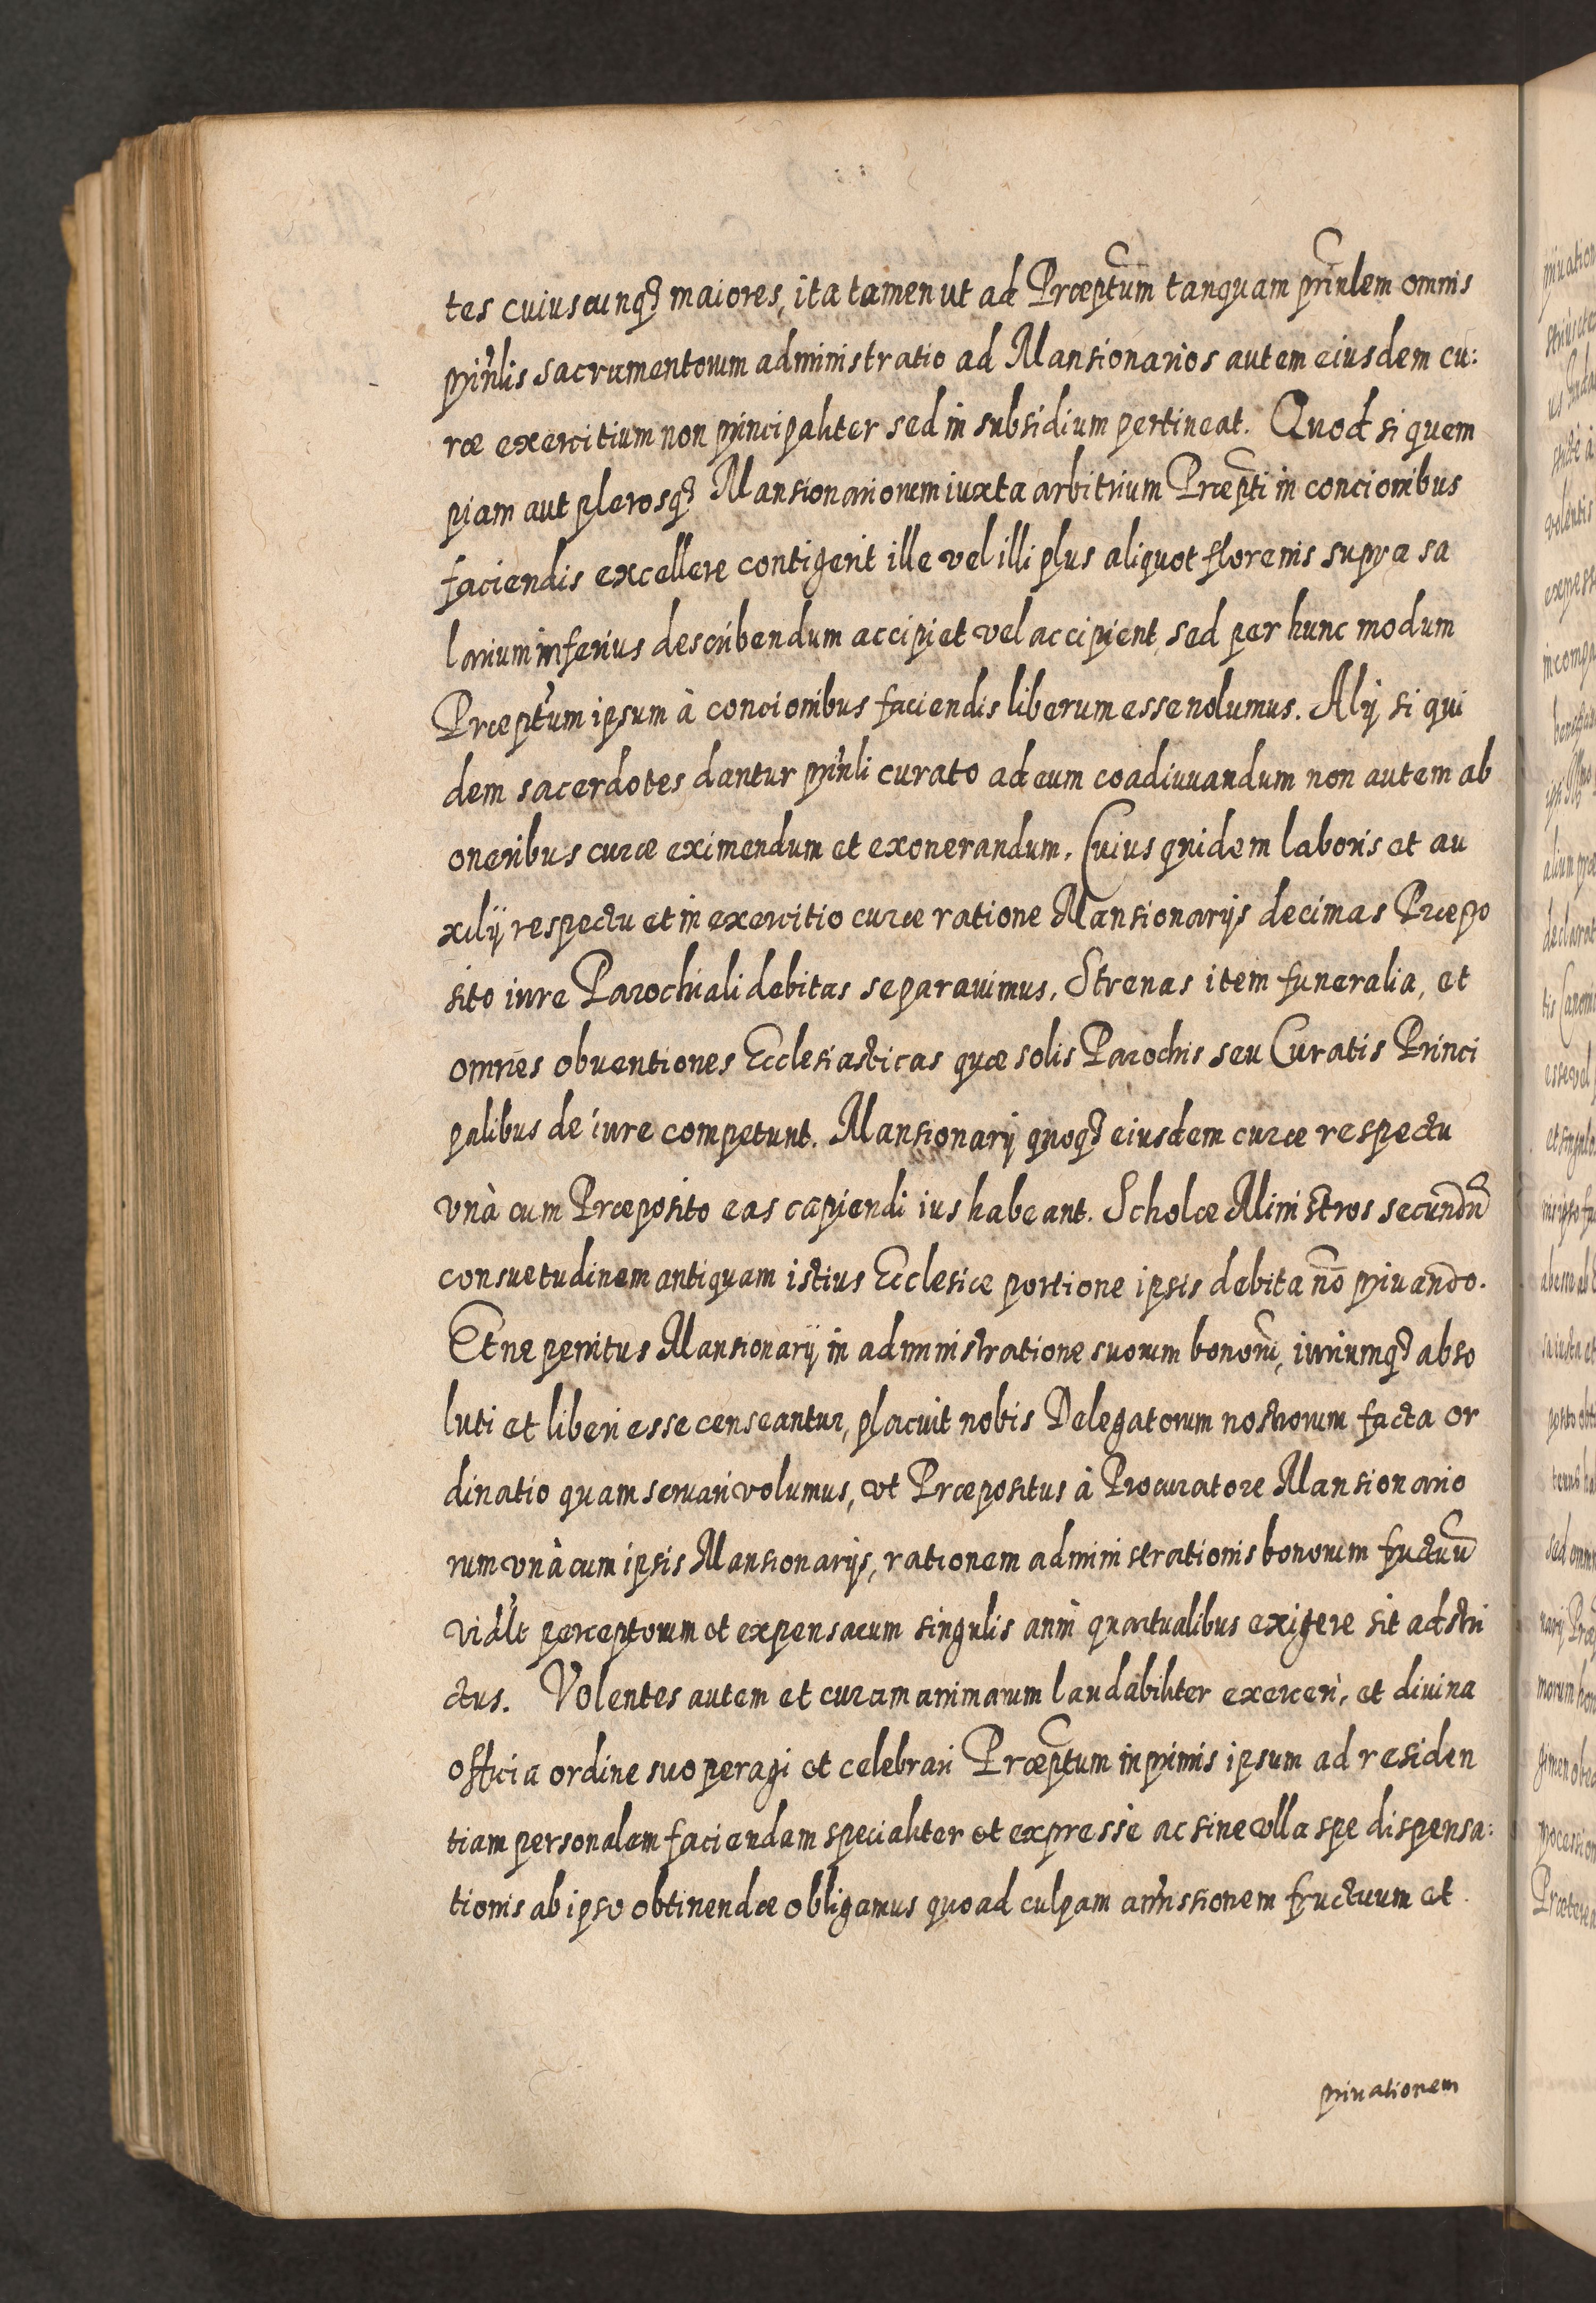 tes cuiuscunqꝫ maiores, ita tamen ut ad Præptum tanquam prinlem omnis
prinlis sacramentorum administratio ad Mansionarios autem eiusdem cu:
ræ exercitium non principaliter sed in subsidium pertineat. Quod si quem
piam aut plerosqꝫ Mansionariorum iuxta arbitrium Præpti in concionibus
faciendis excellere contigerit ille vel illi plus aliquot florenis supra sa
larium inferius describendum accipiet vel accipient, sed per hunc modum
Præptum ipsum à concionibus faciendis liberum esse nolumus. Alÿ si qui
dem sacerdotes dantur prinli curato ad eum coadiuuandum non autem ab
oneribus curæ eximendum et exonerandum. Cuius quidem laboris et au
xilÿ respectu et in exercitio curæ ratione Mansionarÿs decimas Præpo
sito iure Parochiali debitas separauimus, Strenas item funeralia, et
omnes obuentiones Ecclesiasticas quæ solis Parochis seu Curatis Princi
palibus de iure competunt. Mansionarÿ quoqꝫ eiusdem curæ respectu
vnà cum Præposito eas capiendi ius habeant. Scholæ Ministros secundũ
consuetudinem antiquam istius Ecclesiæ portione ipsis debita nõ priuando.
Et ne penitus Mansionarÿ in administratione suorum bonorũ, iuriumqꝫ abso
luti et liberi esse censeantur, placuit nobis Delegatorum nostrorum facta or
dinatio quam seruari volumus, vt Præpositus à Procuratore Mansionario
rum vnà cum ipsis Mansionarÿs, rationem administrationis bonorum fructuũ
vidlt perceptorum et expensarum singulis anni quartualibus exigere sit adstri
ctus. Volentes autem et curam animarum laudabiliter exerceri, et diuina
officia ordine suo peragi et celebrari Præptum inprimis ipsum ad residen
tiam personalem faciendam specialiter et expressè ac sine vlla spe dispensa:
tionis ab ipso obtinendæ obligamus quoad culpam amissionem fructuum et
priuationem